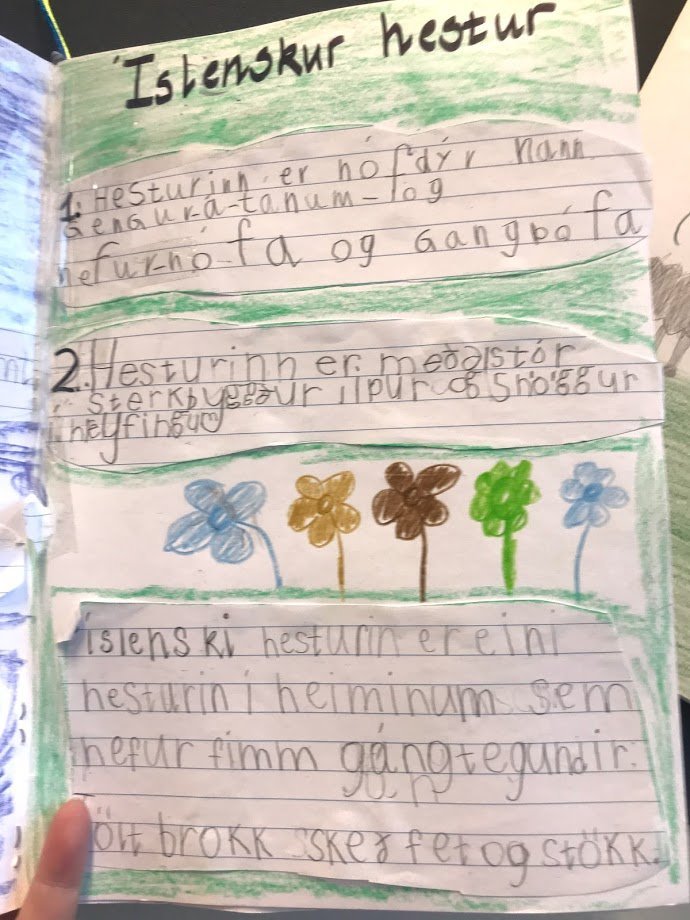 Íslenskur hestur
1. Hesturinn er hófdýr hann
Gengur á-tanum-og
hefur-hó-fa og Gangþófa
2. Hesturinn er meðalstór
sterkbyggður lipur og snöggur
í heyfingum
íslenski hesturin er eini
hesturin í heiminum sem
hefur fimm gángtegundir.
Tölt brokk skeɤ fet og stökk.